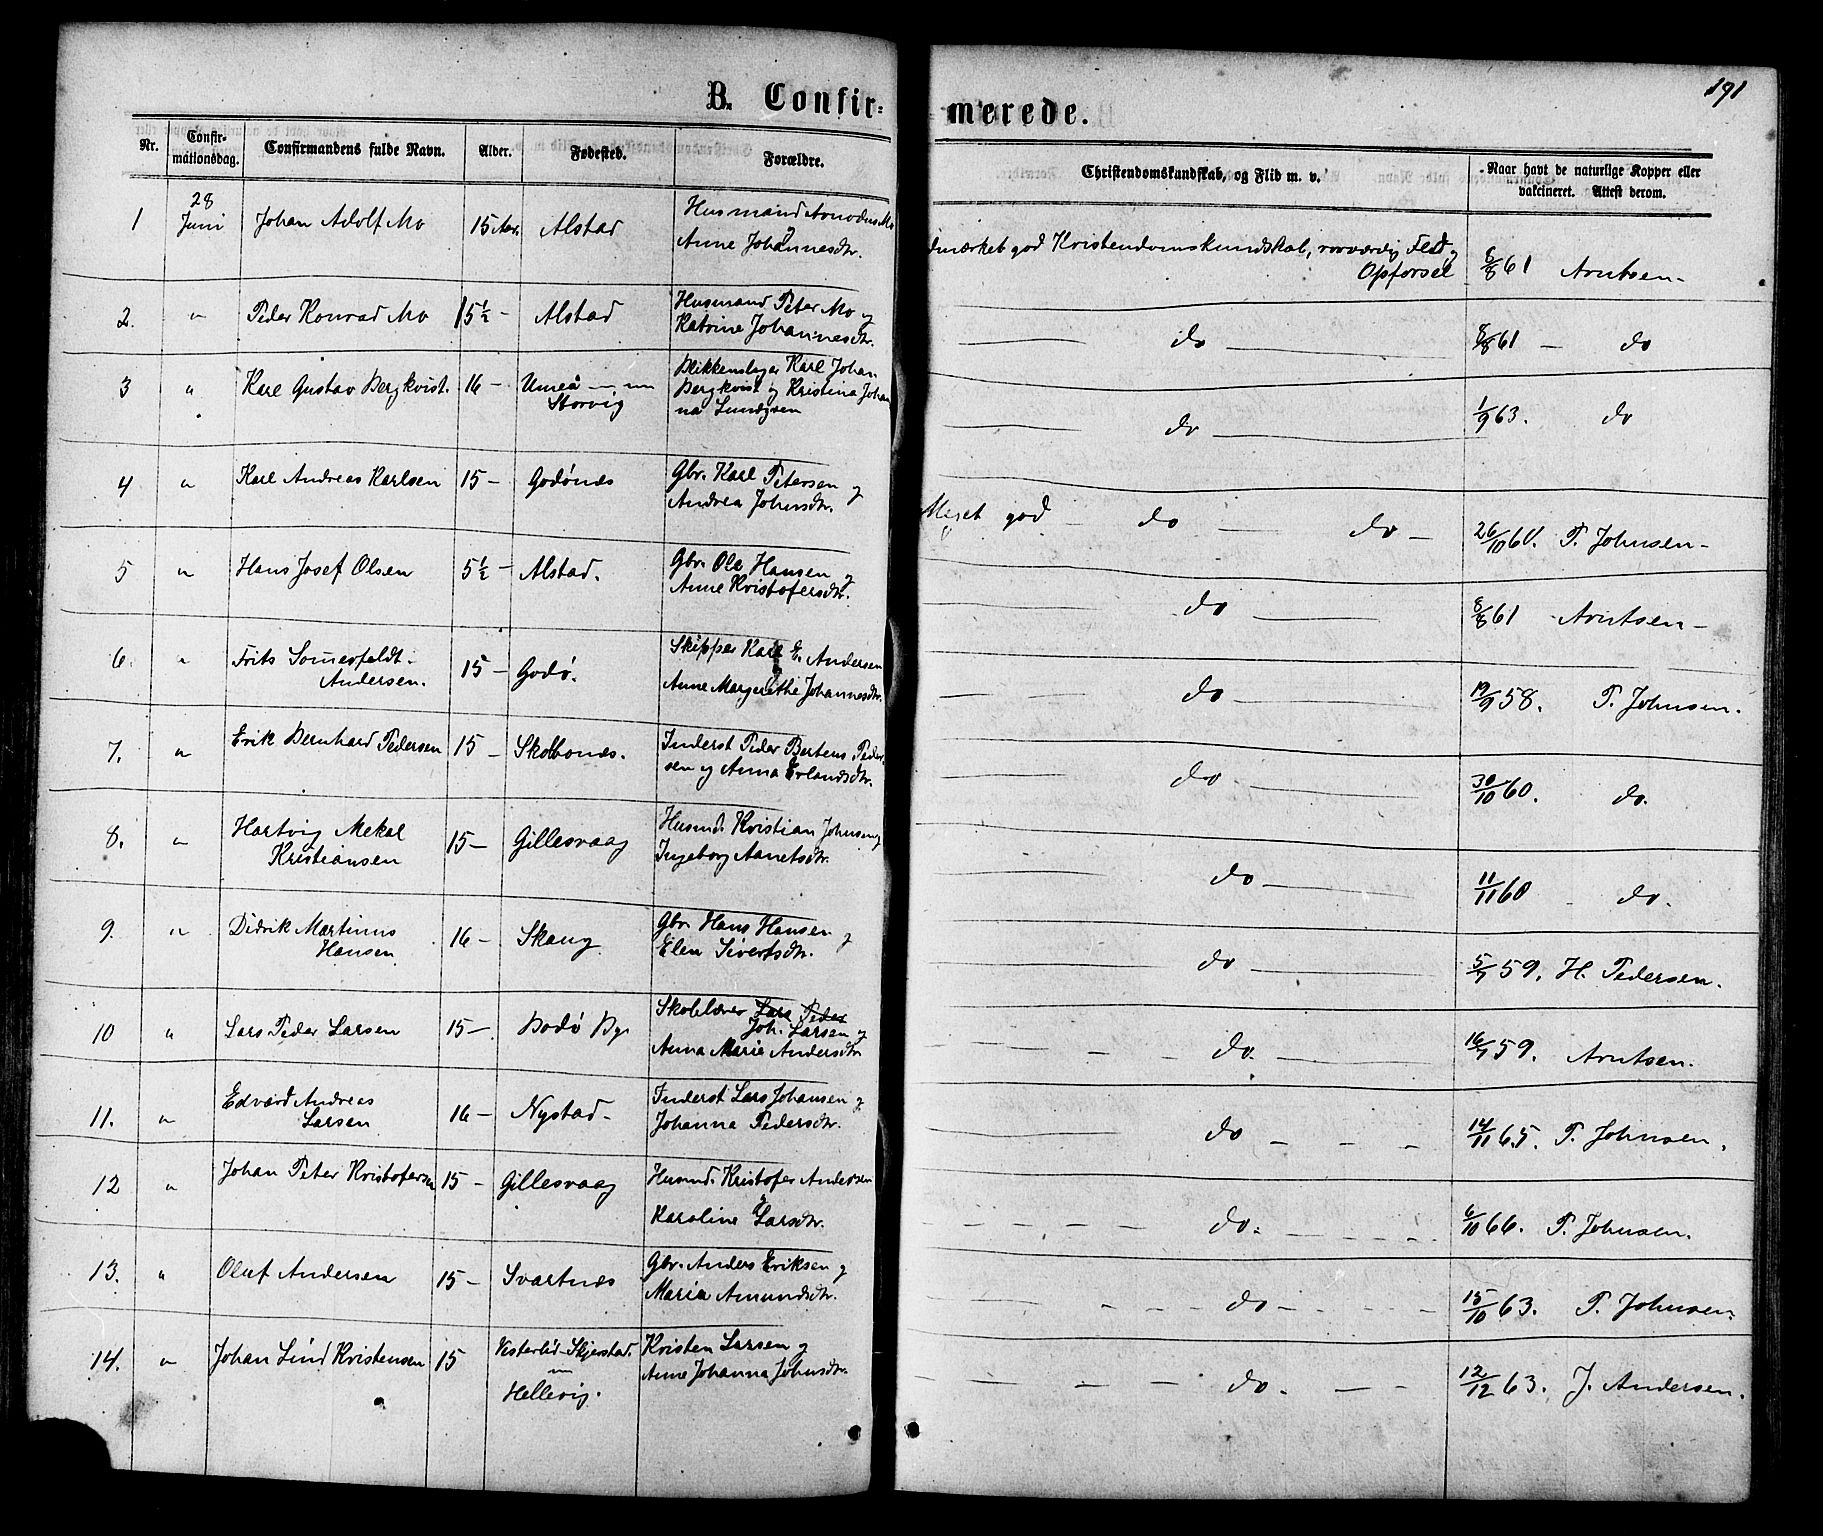 B. Confir-
merede.
191
Nr.
Confir-
mationsdag.
Confirmandens fulde Navn.
Alder.
Fødested.
Forældre.
Christendomskundskab, og Flid m. v.
Naar havt de naturlige Kopper eller
vakcineret. Attest derom.
1 28 Juni Johan Adolf Mo 15 Aar. Alstad Husmand
Anne Johannesdtr.
dmærket god Kristendomskundskab, rosværdig Flid og
Opførsel 8/8 61 Arntsen -
2. " Peder Konrad Mo 15½ - Alstad Husmand Peter Mo og
Katrine Johannesdtr.
do 8/8 61 - do
3 " Karl Gustav Bergkvist. 16 - Umeå
Storvig
Blikkenslager Karl Johan
Bergkvist og Kristina Johan
na Lundgren
do 1/9 63. do
4 " Karl Andreas Karlsen 15 - Godønes Gbr. Karl Petersen og
Andrea Johnsdtr.
Meget god - do - do - 26/10 60. P. Johnsen -
5 " Hans Josef Olsen 5½ - Alstad. Gbr. Ole Hansen og
Anne Kristofersdtr.
do 8/8 61 Arntsen -
6. " Frits Somerfeldt
Andersen. 15 - Godø. Skipper Karl E. Andersen
og
Anne Margrethe Johannesdtr.
do 19/9 58. P. Johnsen.
7. " Erik Bernhard Pedersen 15 - Skolbones. Inderst Peder Bertens Peder
sen og Anna Erlandsdtr.
do 30/10 60. do.
8. " Hartvig Mekal
Kristiansen 15 - Gillesvaag Husmd. Kristian Johnsen og
Ingeborg Aanetsdtr.
do 11/11 60 do.
9. " Didrik Martinus
Hansen 16 - Skaug. Gbr. Hans Hansen og
Elen Sivertsdtr.
do 5/7 59. H. Pedersen.
10 " Lars Peder Larsen 15 - Bodø By. Skolelærer Lars Peder
Joh. Larsen og
Anna Marie Andersdtr
do. 16/7 59. Arntsen.
11. " Edvard Andreas
Larsen 16 - Nystad - Inderst Lars Johansen og
Johanna Pedersdtr.
do - - - 14/11 65. P. Johnsen.
12 " Johan Peter Kristofersen 15 - Gillesvaag Husmd. Kristofer Andersen
og
Karoline Larsdtr.
do. 6/10 66. P. Johnsen.
13. " Oluf Andersen 15 - Svartnes Gbr. Anders Eriksen og
Maria Amundsdtr.
do - 15/10 63. P. Johnsen.
14. " Johan Lind Kristensen 15 Vesterli Skjerstad.
Hellevig.
Kristen Larsen og
Anne Johanna Johnsdtr.
do. - - 12/12 63. J. Andersen.